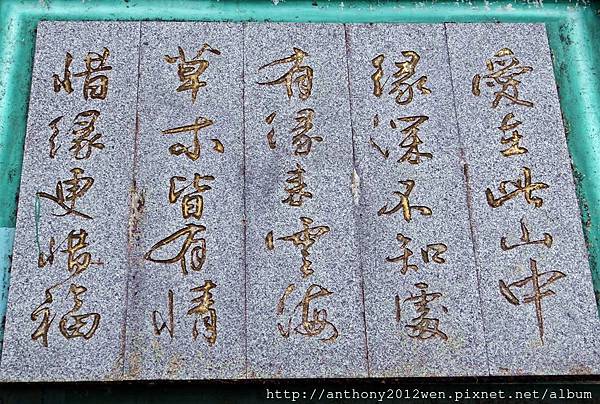 愛在此山中
緣深不知處
有緣來雲海
草木皆有情
惜緣更惜福
http://anthony2012wen.pixnet.net/album